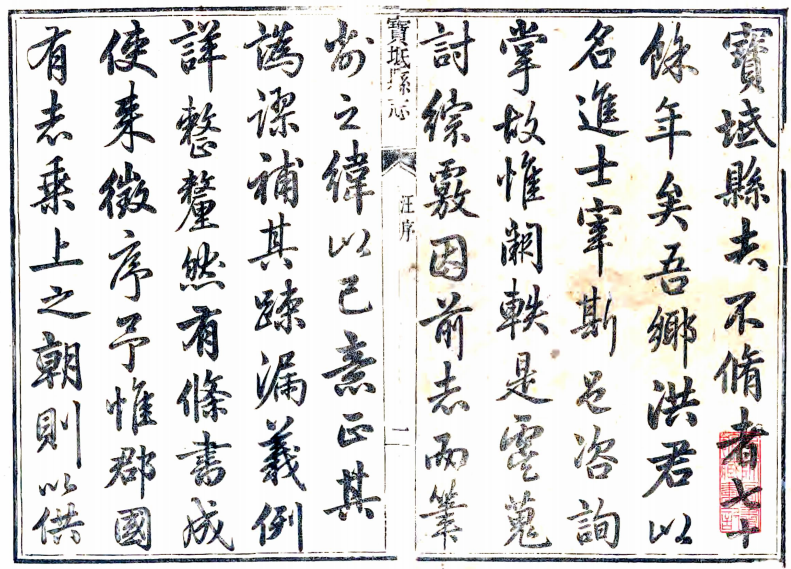 寶坻縣志不脩者七十
餘年矣吾鄉洪君以
名進士宰斯邑咨詢
掌故惟闕軼是虞蒐
討綜覈因前志而筆
寶坻縣志
汪序
一
削之緯以己意正其
譌謬補其疎漏義例
詳整釐然有條書成
使来徵序予惟郡國
有志乘上之朝則以供